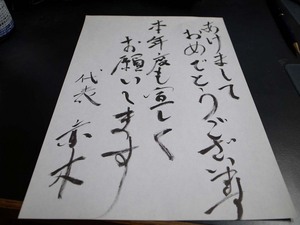 あけまして
おめでとうございます
本年度も宜しく
お願いします
代表 赤木